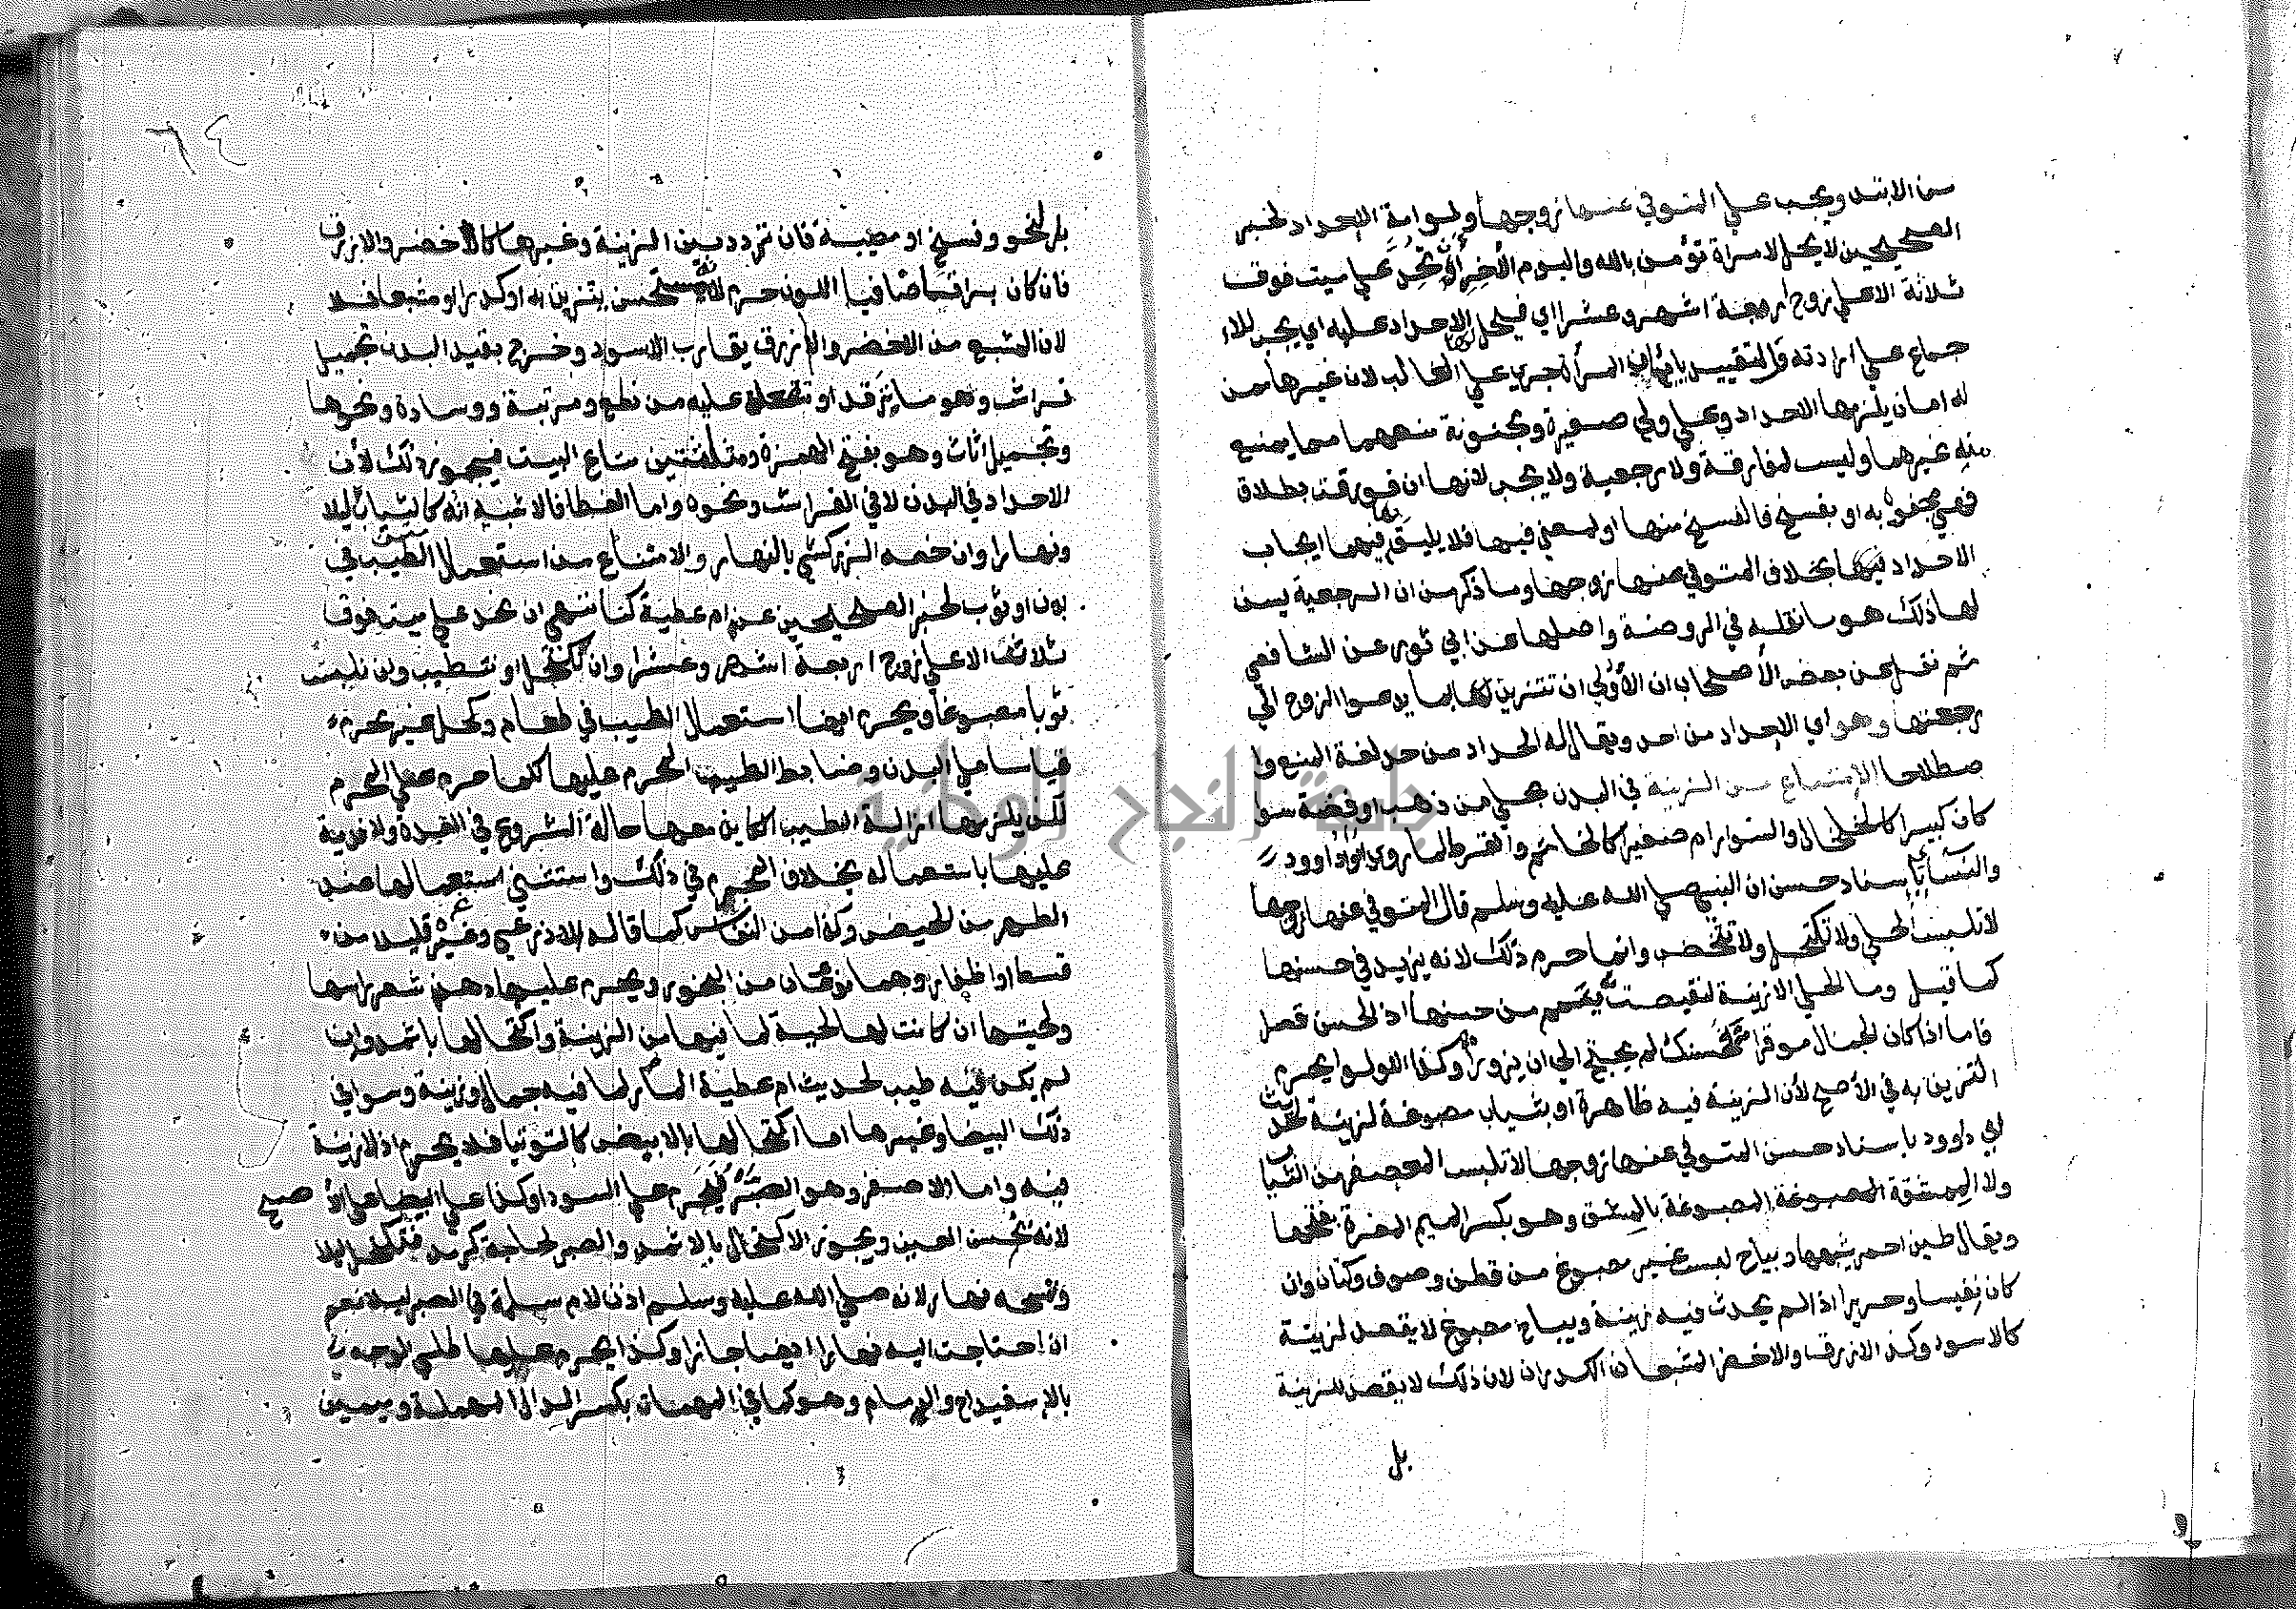 من الابتد ويجب علي المتوفي عنها زوجها ولو امة الاحداد لخبر
الصحيحين لا يحل لامراة تؤمن بالله واليوم الأخر أن تحد علي ميت فوق
ثلاثة الا علي زوج اربعة اشهر وعشرا اي فيحل لها الاحداد عليه اي يجب للا
جماع علي ارادته والتقييد بايمان المرأة جري علي الغالب لان غيرها ممن
له امان يلزمها الاحداد وعلي ولي صغيرة ومجنونة منعهما مما يمنع
منه غيرهما وليست لمفارقة ولا رجعية ولا يجب لانها ان فورقت بطلاق
فهي مجفو به او بفسخ فالفسخ منها او لمعني فيها فلا يليق بها فيهما ايجاب
الاحداد بخلاف المتوفي عنها زوجها وما ذكر من ان الرجعية يسن
لها ذلك هو ما نقله في الروضة واصلها عن ابي ثور عن الشافعي
ثم نقل عن بعض الأصحاب ان الأولي ان تتزين بما يدعوا الزوج الي
رجعتها وهو اي الاحداد من احد ويقال له الحداد من حد لغة المنع وا
صطلاحا الامتناع من الزينة في البدن بحلي من ذهب او فضة سوا
كان كبيرا كالخلخال والسوار ام صغيرا كالخاتم والقرط لما روي ابو داوود
والنسائي باسناد حسن ان النبي صلي الله عليه وسلم قال المتوفي عنها زوجها
لا تلبس الحلي ولا تكتحل ولا تختضب وانما حرم ذلك لانه يزيد في حسنها
كما قيل وما الحلي الا زينة لنقيصة يتمم من حسنها اذ الحسن قصر
فاما اذا كان الجمال موفرا كحسنك لم يحتج الي ان يزورا وكذا اللولو يحرم
التزين به في الأصح لأن الزينة فيه ظاهرة او بثياب مصبوغة لزينة لحديث
ابي داوود باسناد حسن المتوفي عنها زوجها لا تلبس المعصفر من الثياب
ولا الممشقة المصبوغة المصبوغة بالمشق وهو بكسر الميم المغرة بفتحها
ويقال طين احمر يشبهها ويباح لبس غير مصبوغ من قطن وصوف وكتان وان
كان نفيسا وحريرا اذا لم يحدث فيه زينة ويباح مصبوغ لا يقصد لزينة
كالاسود وكذا الازرق والاخضر المشبعان الكدران لان ذلك لا يقصد للزينة
بل
٦٤
بل لنحو وسخ او مصيبة فان تردد بين الزينة وغيرها كالأخضر والازرق
فان كان براقا صافيا اللون حرم لانه مستحسن يتزين به او كدرا او مشبعا فلا
لان المشبع من الاخضر والازرق يقارب الاسود وخرج بقيد البدن تجميل
فراش وهو ما ترقد او تقعد عليه من نطع ومرتبة ووسادة ونحوها
وتجميل اثاث وهو بفتح الهمزة ومثلثتين متاع البيت فيجوز ذلك لأن
الاحداد في البدن لا في الفراش ونحوه واما الغطا فالاشبه انه كالثياب ليلا
ونهارا وان خصه الزركشي بالنهار والامتناع من استعمال الطيب في
بدن او ثوب لخبر الصحيحين عن ام عطية كنا ننهي ان نحد علي ميت فوق
ثلاث الا علي زوج اربعة اشهر وعشرا وان نكتحل او نتطيب وان نلبس
ثوبا مصبوغا ويحرم ايضا استعمال الطيب في طعام وكحل غير محرم
قياسا علي البدن وضابط الطيب المحرم عليها كلما حرم علي المحرم
لكن يلزمها ازالة الطيب الكاين معها حالة الشروع في العدة ولا فدية
عليها باستعماله بخلاف المحرم في ذلك واستثني استعمالها عند
الطهر من الحيض وكذا من النفاس كما قاله الاذرعي وغيره قليلا من
قسط او اظفار وهما نوعان من البخور ويحرم عليها دهن شعر راسها
ولحيتها ان كانت لها لحية لما فيها من الزينة واكتحالها باثمد وان
لم يكن فيه طيب لحديث ام عطية المار لما فيه جمال وزينة وسوا في
ذلك البيضا وغيرها اما اكتحالها بالابيض كالتوتيا فلا يحرم اذ لا زينة
فيه واما الاصفر وهو الصبر فيحرم علي السودا وكذا علي البيضا علي الأصح
لانه يحسن العين ويجوز الاكتحال بالاثمد والصبر لحاجة كرمد فتكتحل ليلا
وتمسحه نهارا لانه صلي الله عليه وسلم اذن لام سلمة في الصبر ليلا نعم
ان احتاجت اليه نهارا ايضا جاز وكذا يحرم عليها طلي الوجه
بالاسفيداج والدمام وهو كما في المهمات بكسر الدال المهملة وميمين